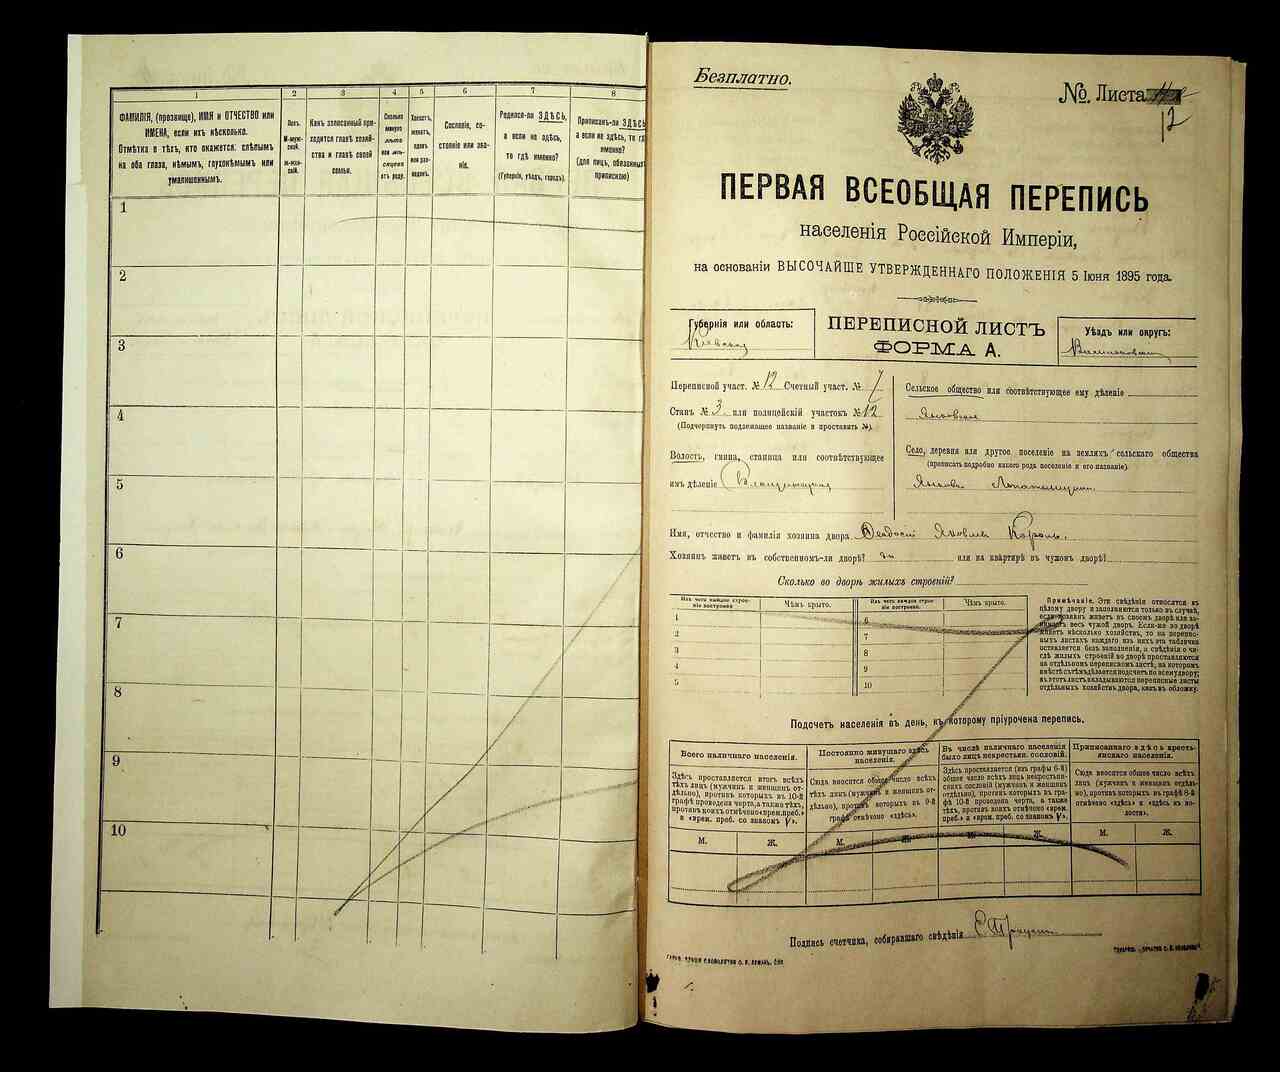 1
2
3
4
5
6
7
8
ФАМИЛІЯ, (прозвище), ИМЯ и ОТЧЕСТВО или
ИМЕНА, если ихъ нѣсколько.
Отмѣтка о тѣхъ, кто окажется: слѣпымъ
на оба глаза, нѣмымъ, глухонѣмымъ или
умалишеннымъ.
Полъ.
М-муж-
ской.
Ж-жен-
скій.
Какъ записанный при-
ходится главѣ хозяй-
ства и главѣ своей
семьи.
Сколько
минуло
лѣтъ
или мѣ-
сяцевъ
отъ роду.
Холостъ,
женатъ,
вдовъ
или раз-
веденъ.
Сословіе, со-
стояніе или зва-
ніе.
Родился-ли ЗДѢСЬ,
а если не здѣсь,
то гдѣ именно?
(Губернія, уѣздъ, городъ).
Приписанъ-ли ЗДѢСЬ,
а если не здѣсь, то гдѣ
именно?
(для лицъ, обязанныхъ
припискою)
1
2
3
4
5
6
7
8
9
10
Безплатно.
№ Листа
12
ПЕРВАЯ ВСЕОБЩАЯ ПЕРЕПИСЬ
населенія Россійской Имперіи,
на основаніи ВЫСОЧАЙШЕ УТВЕРЖДЕННАГО ПОЛОЖЕНІЯ 5 Іюня 1895 года.
Губернія или область:
Кіевская
ПЕРЕПИСНОЙ ЛИСТЪ
ФОРМА А.
Уѣздъ или округъ:
Переписной участ. № 12 Счетный участ. № 7
Станъ № 3 или полицейскій участокъ № 12
(Подчеркнуть подлежащее названіе и проставить №).
Волость, гмина, станица или соотвѣтствующее
имъ дѣленіе
Сельское общество или соотвѣтствующее ему дѣленіе
Село, деревня или другое поселеніе на земляхъ сельскаго общества
(прописать подробно какого рода поселеніе и его названіе).
Имя, отчество и фамилія хозяина двора Ѳеодосій Яковлевъ Король.
Хозяинъ живетъ въ собственномъ-ли дворѣ? да или на квартирѣ въ чужомъ дворѣ?
Сколько во дворѣ жилыхъ строеній?
Изъ чего каждое строе-
ніе построено
Чѣмъ крыто.
Изъ чего каждое строе-
ніе построено.
Чѣмъ крыто.
1
2
3
4
5
6
7
8
9
10
Примѣчаніе. Эти свѣдѣнія относятся къ
цѣлому двору и заполняются только въ случаѣ,
если хозяинъ живетъ въ своемъ дворѣ или за-
нимаетъ весь чужой дворъ. Если-же во дворѣ
живетъ нѣсколько хозяйствъ, то на перепис-
ныхъ листахъ каждаго изъ нихъ эта табличка
оставляется безъ заполненія, а свѣдѣнія о чи-
слѣ жилыхъ строеній во дворѣ проставляются
на отдѣльномъ переписномъ листѣ, на которомъ
вмѣстѣ съ тѣмъ дѣлается подсчетъ по всему двору;
въ этотъ листъ вкладываются переписные листы
отдѣльныхъ хозяйствъ двора, какъ въ обложку.
Подсчетъ населенія въ день, къ которому пріурочена перепись.
Всего наличнаго населенія.
Здѣсь проставляется итогъ всѣхъ
тѣхъ лицъ (мужчинъ и женщинъ от-
дѣльно), противъ которыхъ въ 10-й
графѣ проведена черта, а также тѣхъ,
противъ коихъ отмѣчено «врем. преб.»
и «врем. преб. со знакомъ V».
Постоянно живущаго здѣсь
населенія.
Сюда вносится общее число всѣхъ
тѣхъ лицъ (мужчинъ и женщинъ от-
дѣльно), противъ которыхъ въ 9-й
графѣ отмѣчено «здѣсь».
Въ числѣ наличнаго населенія
было лицъ некрестьян. сословій.
Здѣсь проставляется (изъ графы 6-й)
общее число всѣхъ лицъ некрестьян-
скихъ сословій (мужчинъ и женщинъ
отдѣльно), противъ которыхъ въ гра-
фѣ 10-й проведена черта, а также
тѣхъ, противъ коихъ отмѣчено «врем.
преб.» и «врем. преб. со знакомъ V».
Приписаннаго здѣсь кресть-
янскаго населенія.
Сюда вносится общее число всѣхъ
лицъ (мужчинъ и женщинъ отдѣль-
но), противъ которыхъ въ графѣ 8-й
отмѣчено «здѣсь» и «здѣсь въ во-
лости».
М.
Ж.
М.
Ж.
М.
Ж.
М.
Ж.
Подпись счетчика, собиравшаго свѣдѣнія